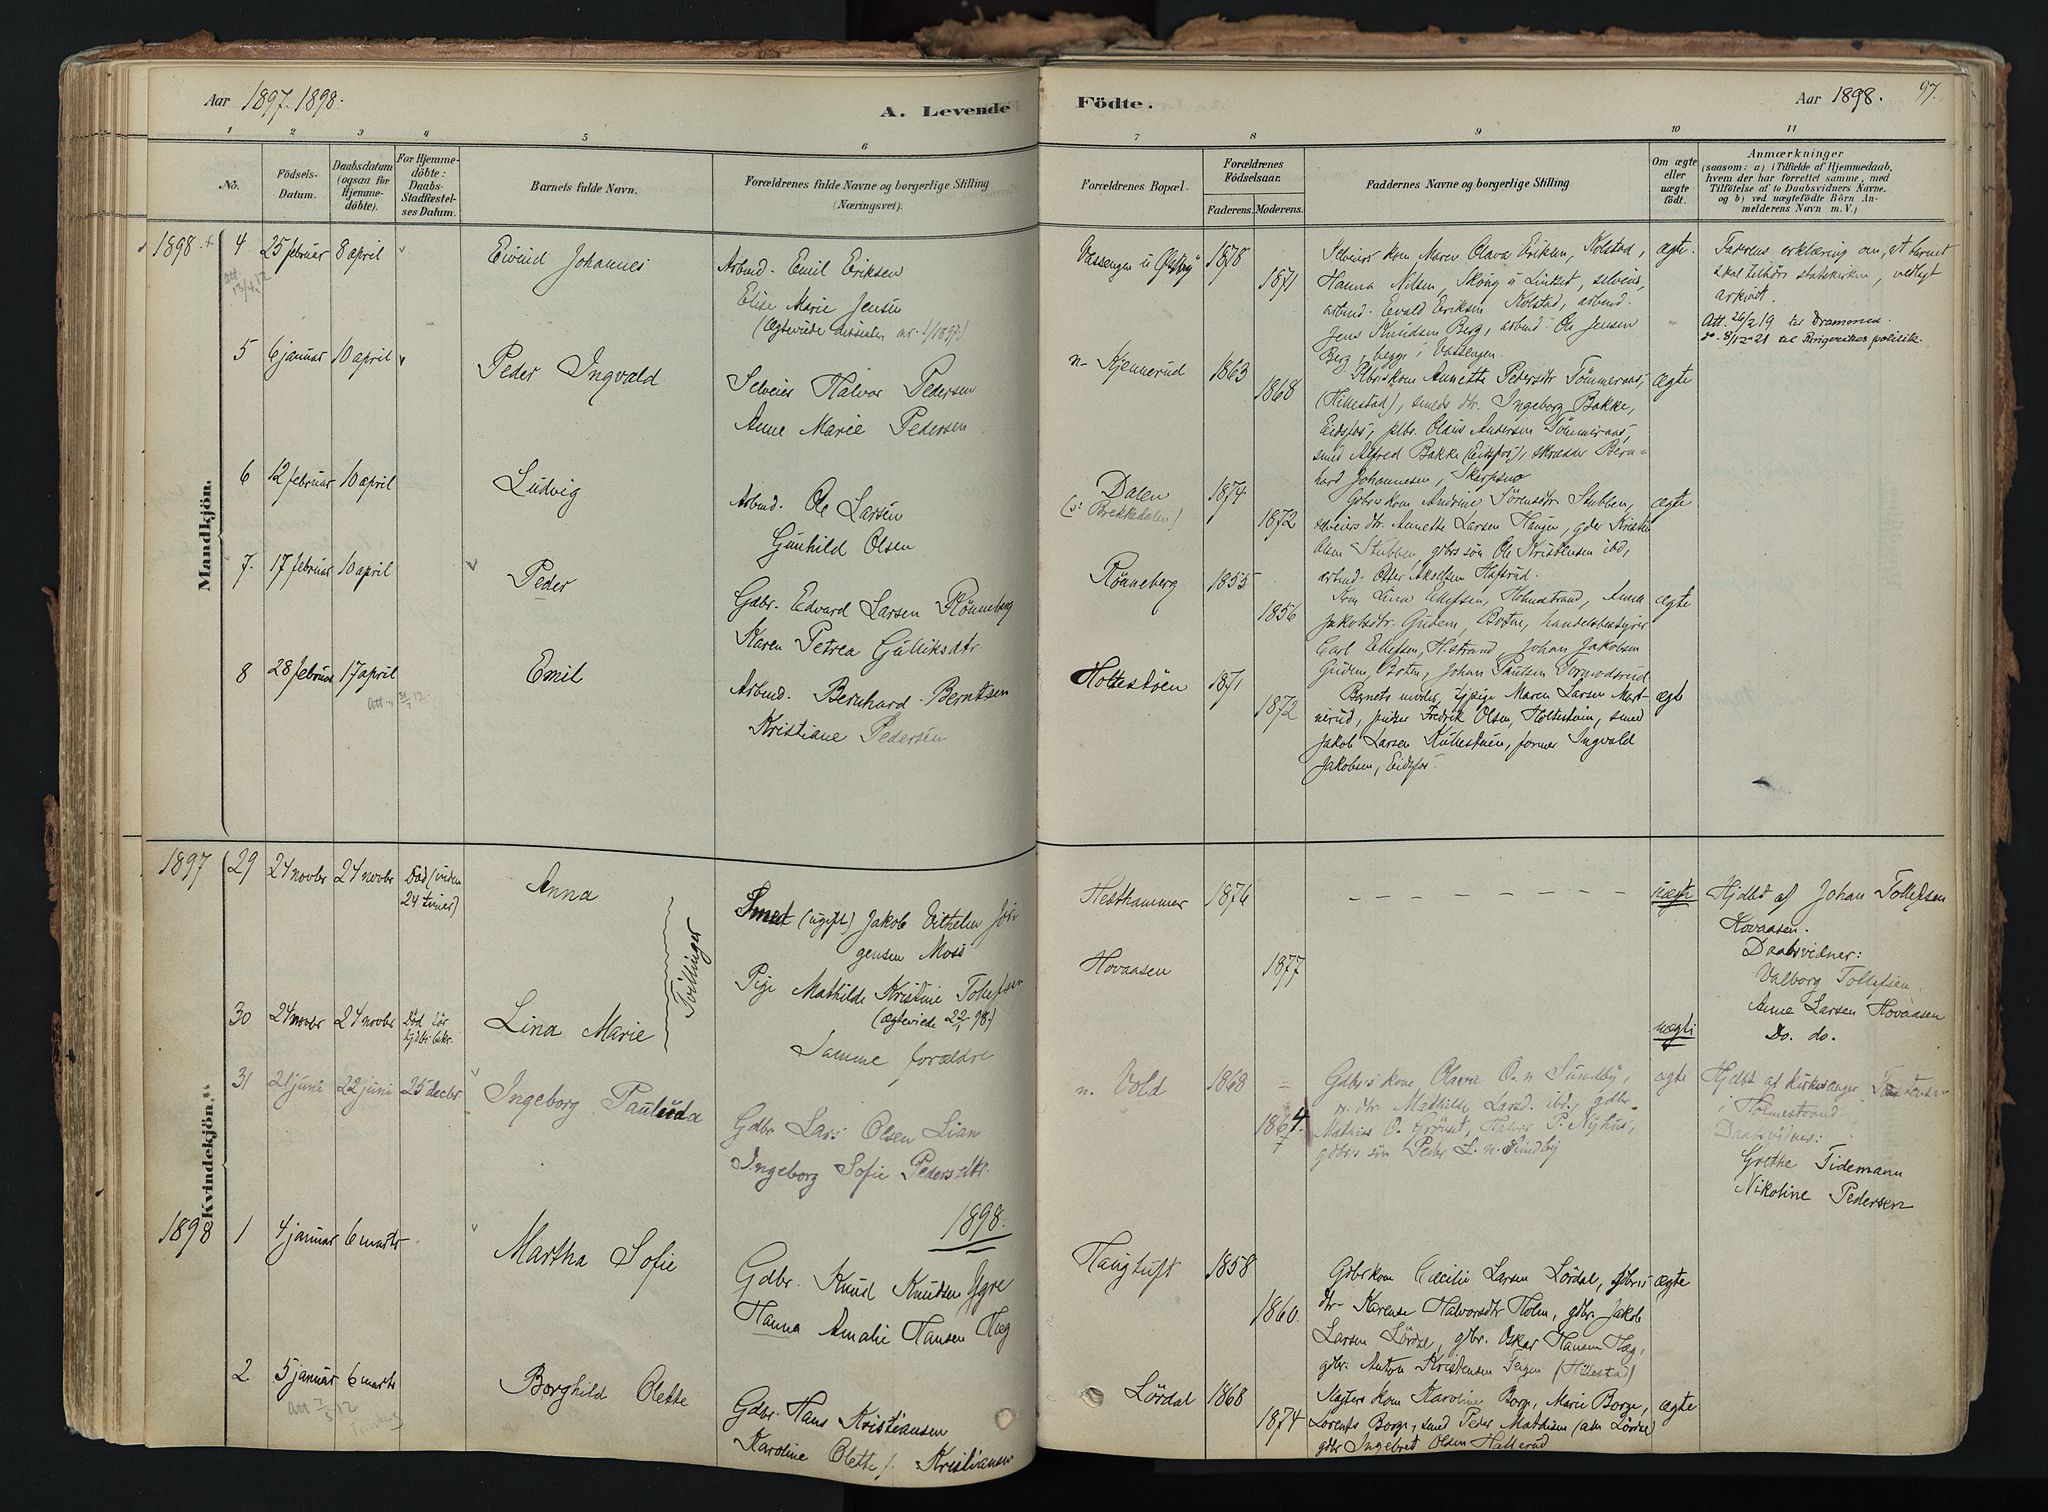 Aar 1897-1898.
A. Levende
Födte.
Aar 1898.
97.
1
2
3
4
5
6
7
8
9
10
11
No.
Födsels-
Datum.
Daabsdatum
(ogsaa for
Hjemme-
döbte).
For Hjemme-
döbte:
Daabs-
Stadfæstel-
ses Datum.
Barnets fulde Navn.
Forældrenes fulde Navne og borgerlige Stilling
(Næringsvei).
Forældrenes Bopæl.
Forældrenes
Födselsaar.
Faderens.
Moderens.
Faddernes Navne og borgerlige Stilling
Om ægte
eller
uægte
födt.
Anmærkninger
(saasom: a) i Tilfælde af Hjemmedaab,
hvem der har forrettet samme, med
Tilföielse af to Daabsvidners Navne,
og b) ved uægtefödte Börn An-
melderens Navn m. V.)
Mandkjön.
1898
4
25 februar
8 april
Eivind Johannes
Arbmd. Emil Eriksen
Elise Marie Jensen
(Ægteviede dissenter nr. 1/1897)
1878
1871
Selveiers kom Maren Olava Eriksen, Kolstad,
Hanna Nilsen, Skoug u Linset, selveier,
arbmd. Evald Eriksen Kolstad, arbmd.
Jens Knudsen Berg, arbmd. Ole Jensen
Berg, begge i Vassengen.
ægte.
Faderens erklæring om, at barnet
skal tilhöre statskirken, vedlagt
arkivet.
Att. 26/2 19 til Drammen.
do. 8/12-21 til Ringerikes politik.
5
6 januar
10 april
Peder Ingvald
Selveier Halvor Pedersen
Anne Marie Pedersen
n. Kjennerud
1863
1868
Plbrs kom Annette Pedersdtr Tömmeraas,
(Hillestad), smeds dtr. Ingeborg Bakke,
Eidsfos, plbr. Olaus Andersen Tömmeraas,
smed Alfred Bakke (Eidsfos), skrædder Bern-
hard Johannesen, Skarpsno
ægte
6
12 februar
10 april
Ludvig
Arbmd. Ole Larsen
Gunhild Olsen
Dalen
(s: Brekkedalen)
1874
1872
Gbrs kom Andrine Sörensdtr Stubben,
selveiers dtr. Annette Larsen Haugen, gbr Kristen
Olsen Stubben, gbrs sön Ole Kristensen ibd,
arbmd. Otter Akselsen Hafsrud.
ægte
7.
17 februar
10 april
Peder
Gdbr. Edvard Larsen Rönneberg
Karen Petrea Gulliksdtr.
Rönneberg
1855
1856
Kom Lina Ellefsen, Holmestrand, Anna
Jakobsdtr. Gudem, Botne, handelsbestyrer
Carl Ellefsen, H.strand, Johan Jakobsen
Gudem, Botne, Johan Paulsen Tormodsrud
ægte
8
28 februar
17 april
Emil
Arbmd. Bernhard Berntsen
Kristiane Pedersen
Holtestöen
1871
1872
Barnets moder, pige Maren Larsen
Fredrik Olsen, Holtestöen, smed
Jakob Larsen former Ingvald
Jakobsen, Eidsfos
ægte
Kvindekjön.
1897
29
24 novbr
24 novbr
Död (inden
24 timer)
Anna
Tvillinger
Smed (ugift) Jakob Vilhelm Jör-
gensen Moss
Pige Mathilde Kristine Tollefsen
(ægteviede 22/1 98.)
Hesthammer
Hovaasen
1876
1877
uægte
Hjdbt af Johan Tollefsen
Hovaasen.
Daabsvidner:
Valborg Tollefsen.
Anne Larsen Hovaasen
30
24 novbr
24 novbr
Död för
hjdbs bekr.
Lina Marie
Samme forældre
uægte
Do. do.
31
21 juni
22 juni
25 decbr
Ingeborg Paulida
Gdbr Lars Olsen Lian
Ingeborg Sofie Pedersdtr.
n. Vold
1868
1864.
Gdbrs kone Olava O. n Sundby,
n. dtr. Mathilde Larsd. ibd., gdbr.
Mathias O. Grönset, Halvor P. Nyhus,
gdbrs sön Peder L. n. Sundby
ægte
Hjdbt af kirkesanger
i Holmestrand.
Daabsvidner:
Grethe Tidemann
Nikoline Pedersen
1898.
1898
1
4 januar
6 marts
Martha Sofie
Gdbr. Knud Knudsen Ygre
Hanna Amalie Hansen Hæg
Haugtuft
1858
1860.
Gdbrs kom Cecilie Larsen Lördal, gdbrs
dtr. Karense Halvorsdtr Holm, gdbr. Jakob
Larsen Lördal, gdbr. Oskar Hansen Hæg,
gdbr. Anton Kristensen Teigen (Hillestad)
ægte
2
5 januar
6 marts
Borghild Olette
Gdbr. Hans Kristiansen
Karoline Olette Kristiansen
Lördal
1868
1874
Slagters kom Karoline Borge, Marie Borge,
Lorents Borge, smed Peder Mathisen (alm Lördal)
gdbr Ingebret Olsen Hallerud
ægte